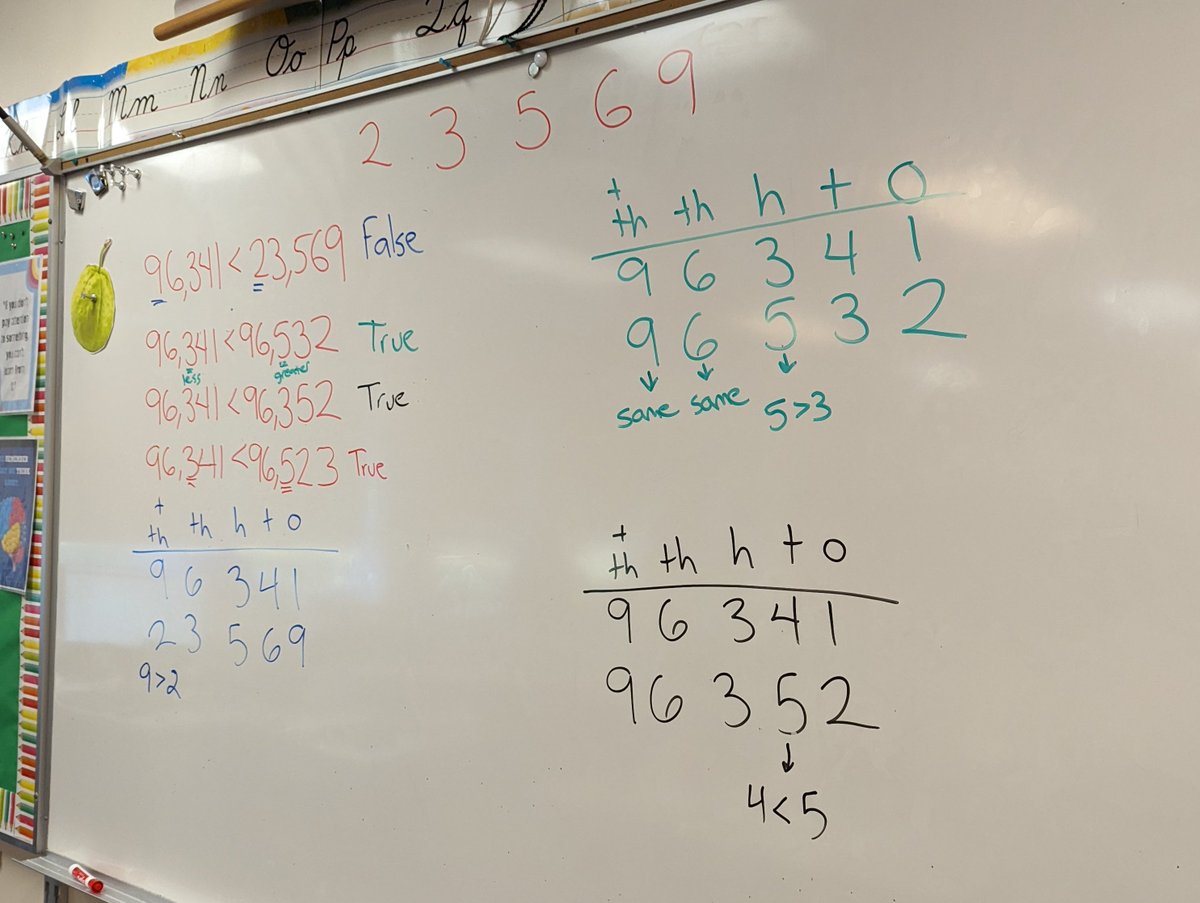 Ll Mm Nn Oo Pp Qq
2 3 5 6 9
96,341 < 23,569 False
96,341 < 96,532 True
less greater
96,341 < 96,352 True
96,341 < 96,523 True
t
th th h t o
9 6 3 4 1
2 3 5 6 9
9>2
t
th th h t o
9 6 3 4 1
9 6 5 3 2
↓ ↓ ↓
same same 5>3
t
th th h t o
9 6 3 4 1
9 6 3 5 2
↓
4<5
"If you don't
pay attention
to something,
you can't
learn from
it."